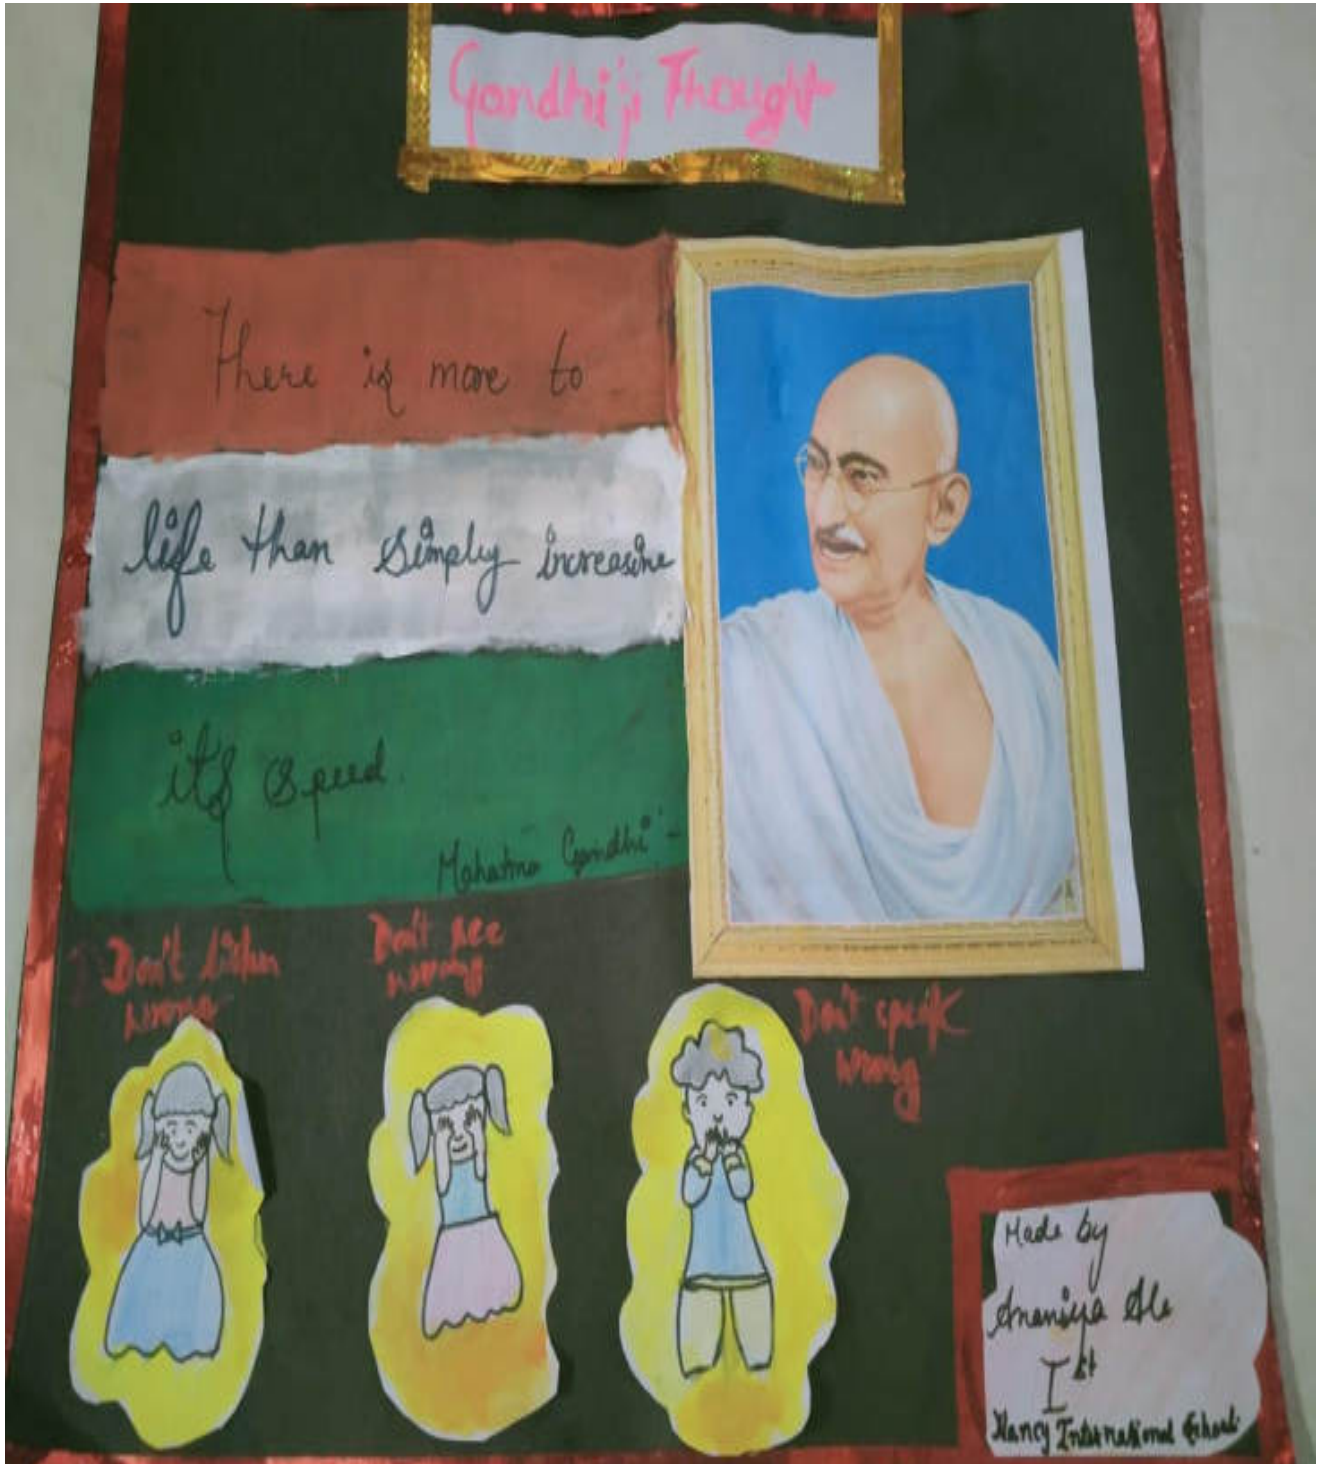 Gandhi'ji Thought
There is more to
life than simply increasine
it's speed.
Mahatma Gandhi -
Don't listen
wrong
Don't see
wrong
Don't speak
wrong
Made by
Ananiya Ale
Ist
Nancy International School